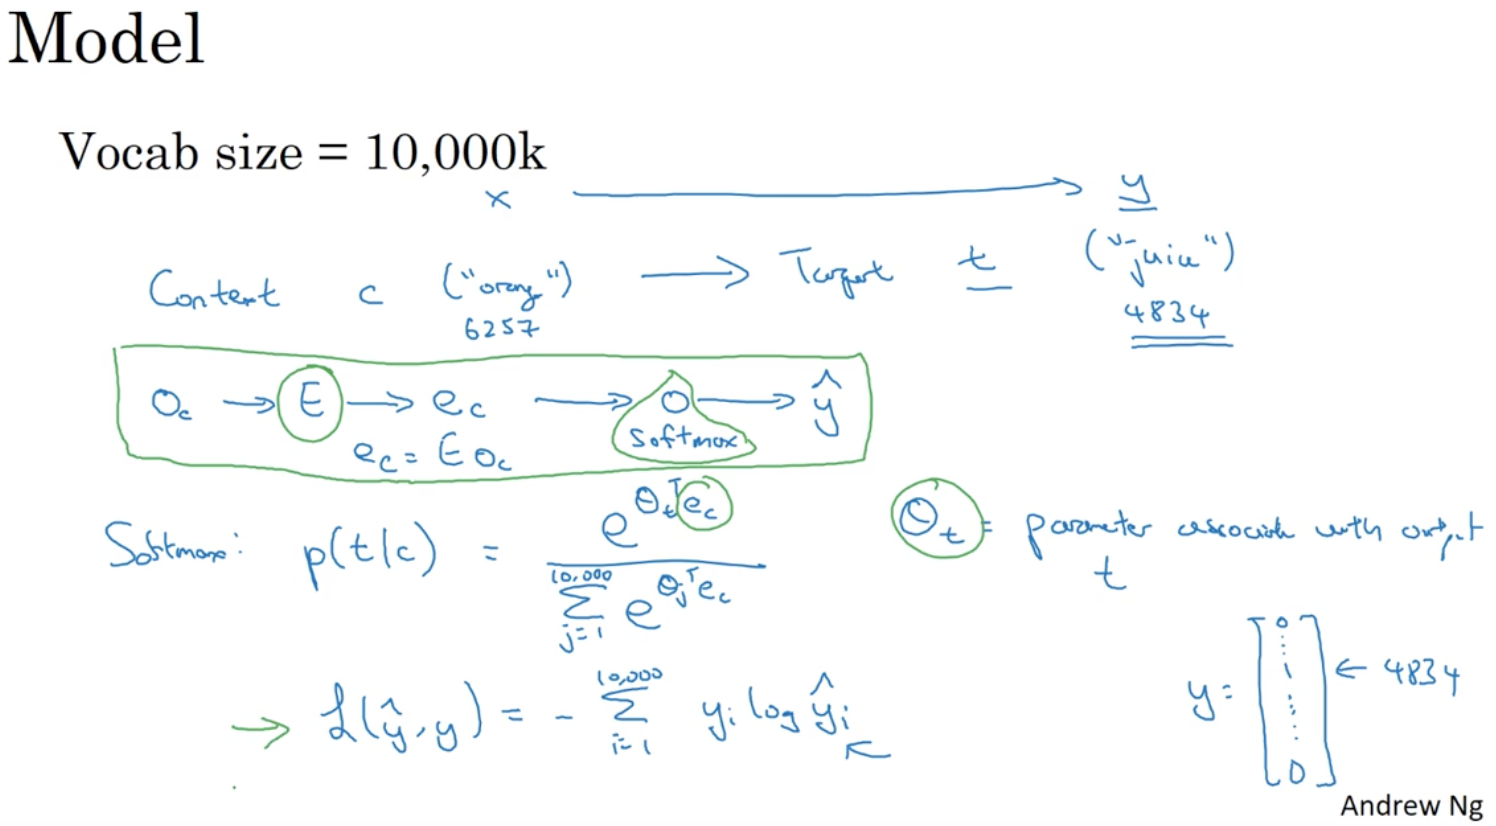 Model
Vocab size = 10,000k
x → y
Context c ("orange") → Target t ("juice")
6257 4834
O_c → E → e_c → o → ŷ
softmax
e_c = E o_c
Softmax: p(t|c) = e^{θ_t^T e_c} / Σ_{j=1}^{10,000} e^{θ_j^T e_c}
θ_t = parameter associate with output t
→ ℒ(ŷ, y) = - Σ_{i=1}^{10,000} y_i log ŷ_i ←
y = [0 ⋮ 1 ⋮ 0] ← 4834
Andrew Ng